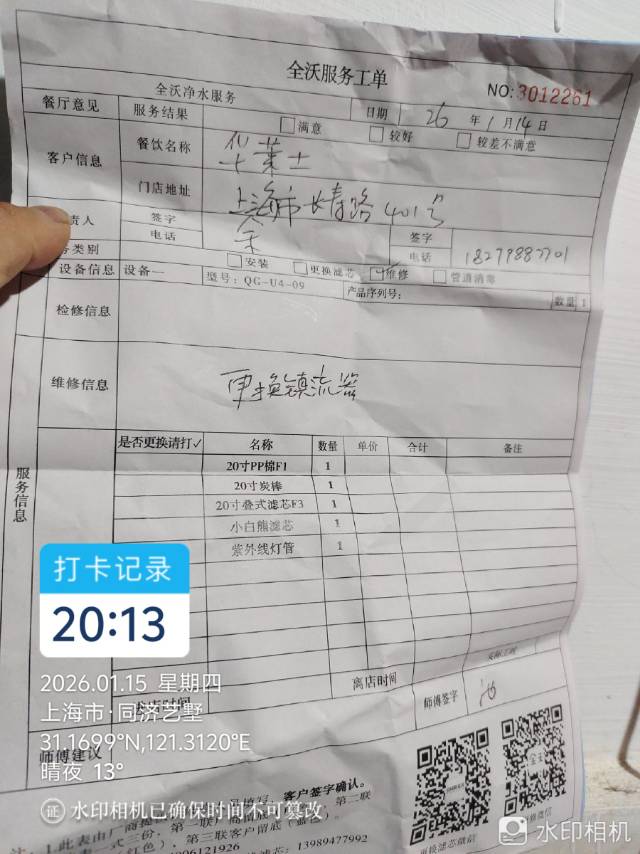 全沃服务工单
全沃净水服务
NO: 3012261
餐厅意见 服务结果 日期 26 年 1 月 14 日
满意 较好 较差不满意
客户信息 餐饮名称 华莱士
门店地址 上海市长青路401号
责人 签字 余 签字
电话 电话 18279887701
务类别 安装 更换滤芯 维修 管道消毒
设备信息 设备一 型号: QG-U4-09 产品序列号: 数量 1
检修信息
维修信息 更换镇流器
服务信息
是否更换请打✓ 名称 数量 单价 合计 备注
20寸PP棉F1 1
20寸炭棒 1
20寸叠式滤芯F3 1
小白熊滤芯 1
紫外线灯管 1
离店时间
师傅签字
师傅建议
客户签字确认。
注:1.上此表由
表一式三份,
第三联客户留底(蓝色)。
06121926
13989477992
打卡记录
20:13
2026.01.15 星期四
上海市·同济艺墅
31.1699°N,121.3120°E
晴夜 13°
证 水印相机已确保时间不可篡改
水印相机